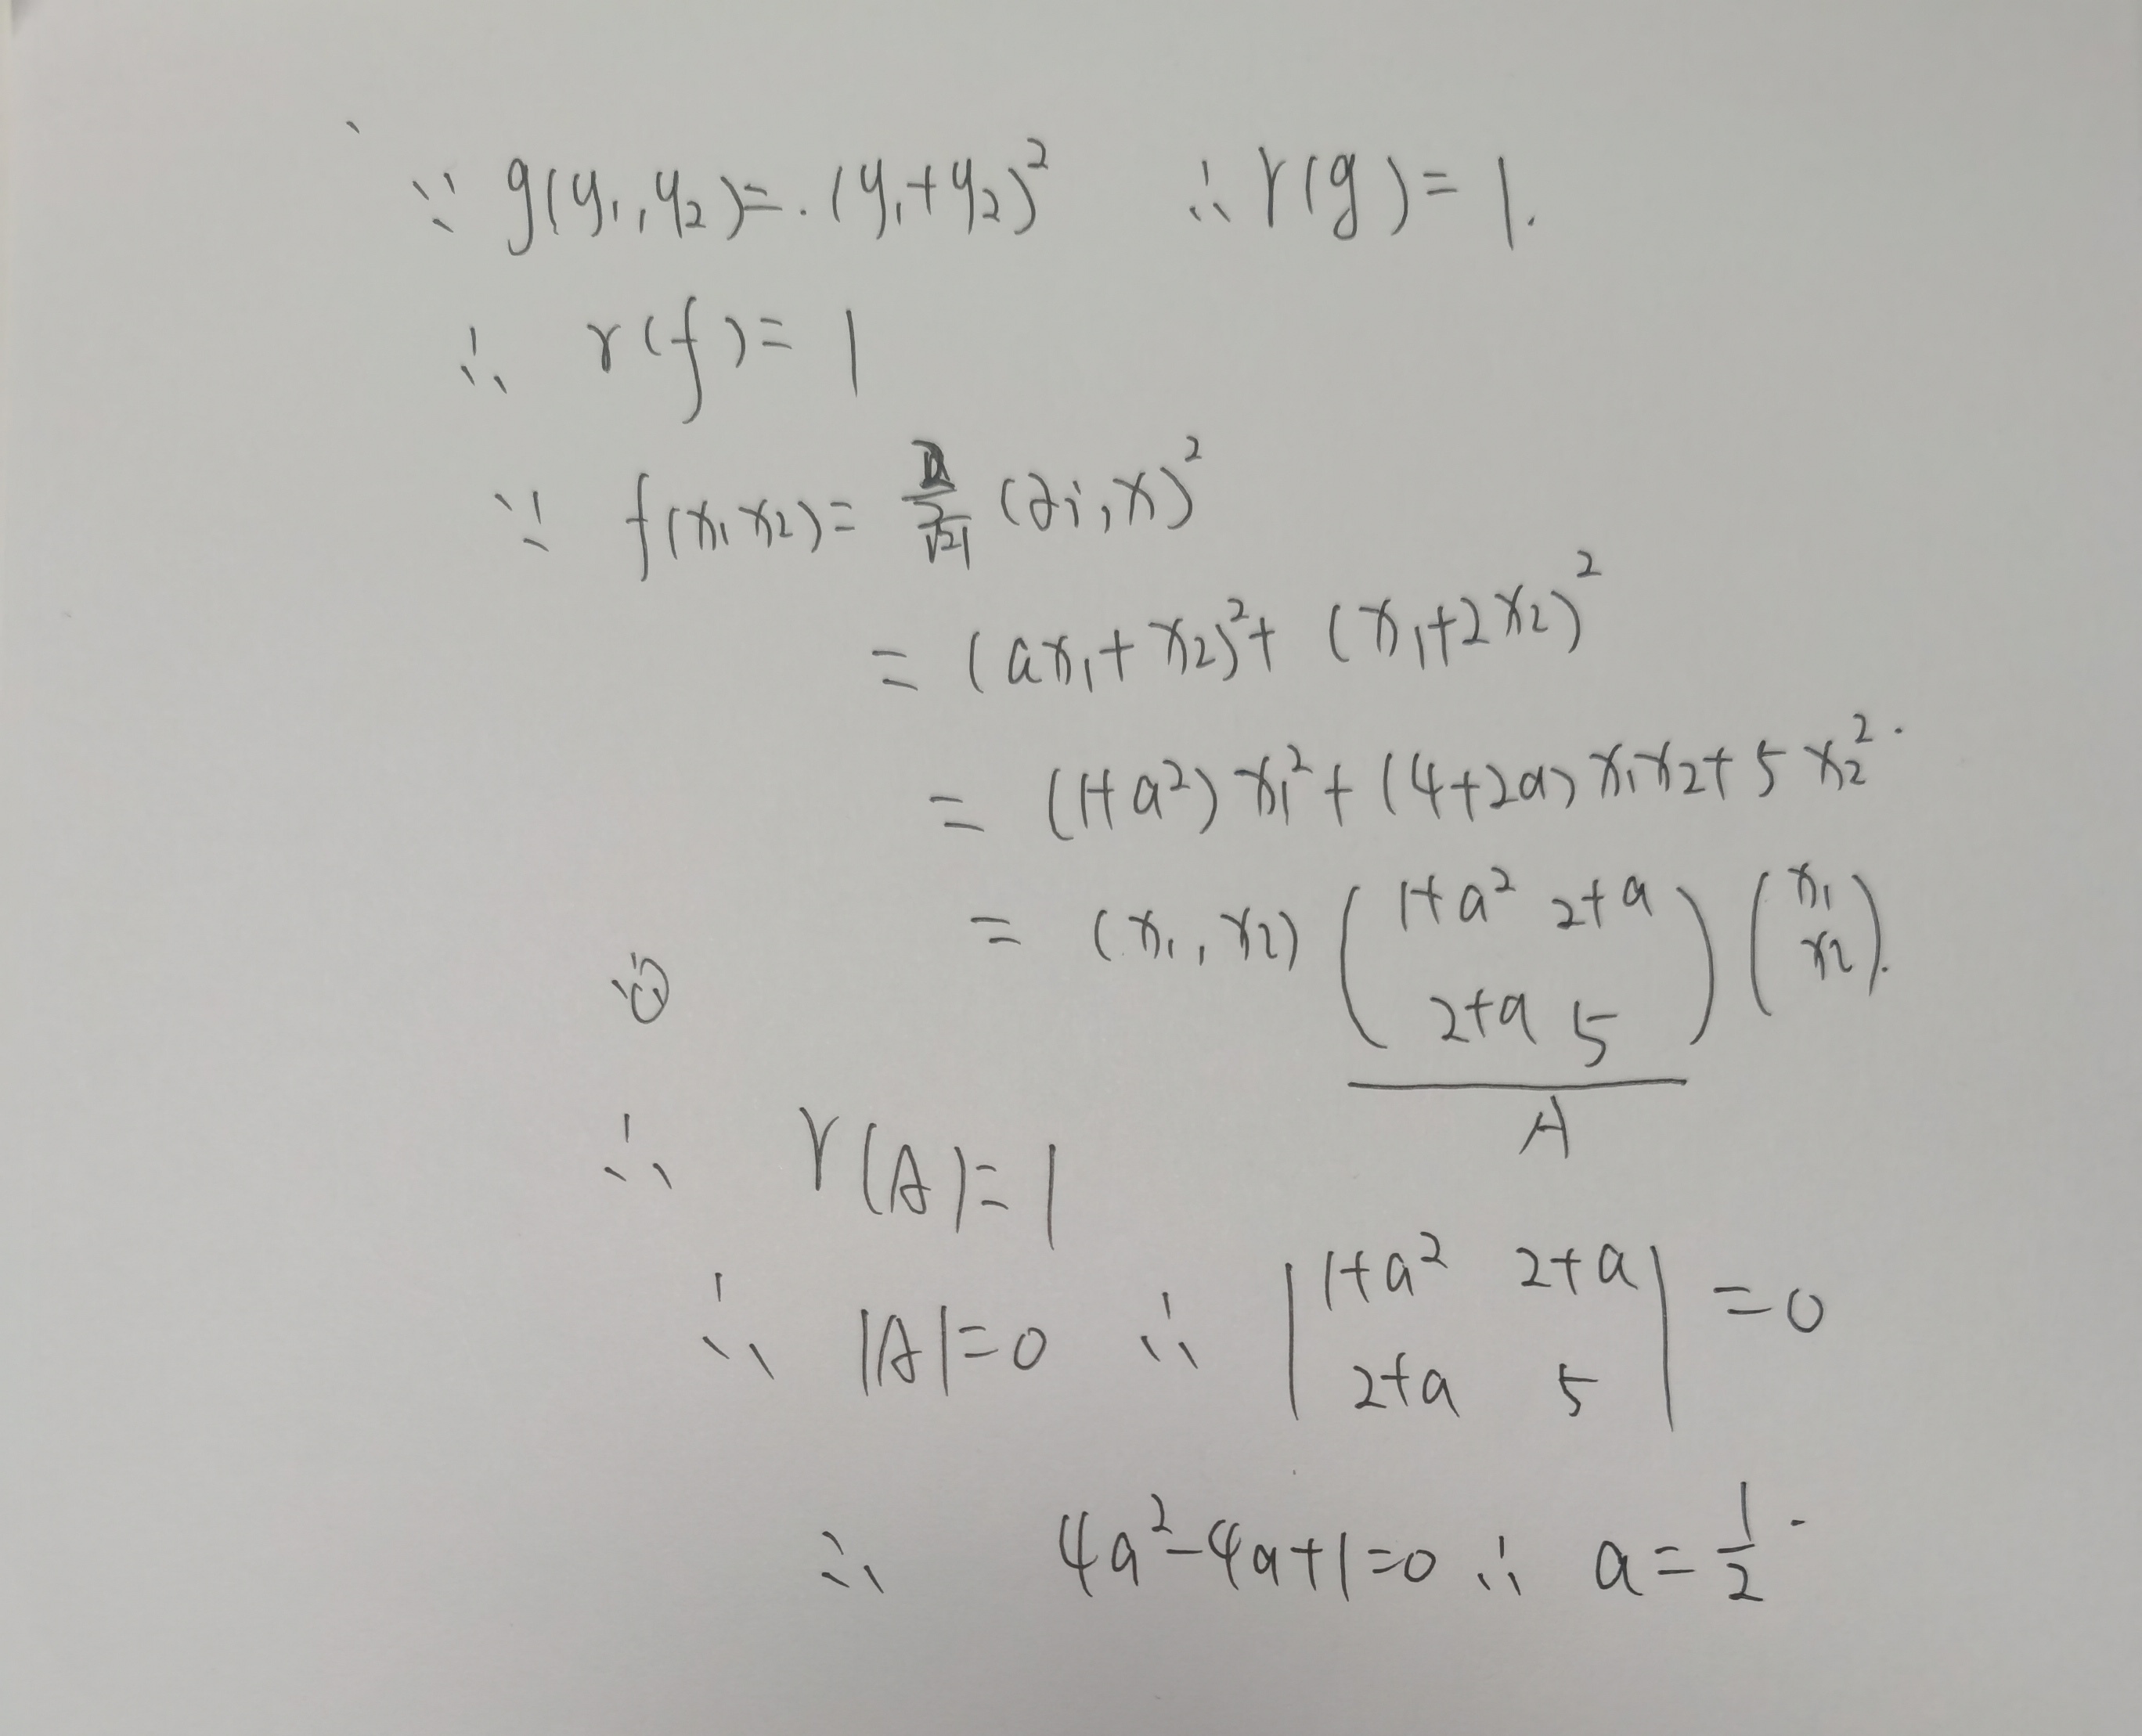 ∵ g(y₁,y₂)=.(y₁+y₂)² ∴ r(g)=1.
∴ r(f)=1
∵ f(x₁x₂)= (∂i,x)²
= (ax₁+x₂)²+(x₁+2x₂)²
= (1+a²)x₁²+(4+2a)x₁x₂+5x₂².
= (x₁,x₂) (1+a² 2+a
2+a 5) (x₁
x₂).
A
∴ r(A)=1
∴ |A|=0 ∴ |1+a² 2+a
2+a 5| =0
∴ 4a²-4a+1=0 ∴ a=1/2.